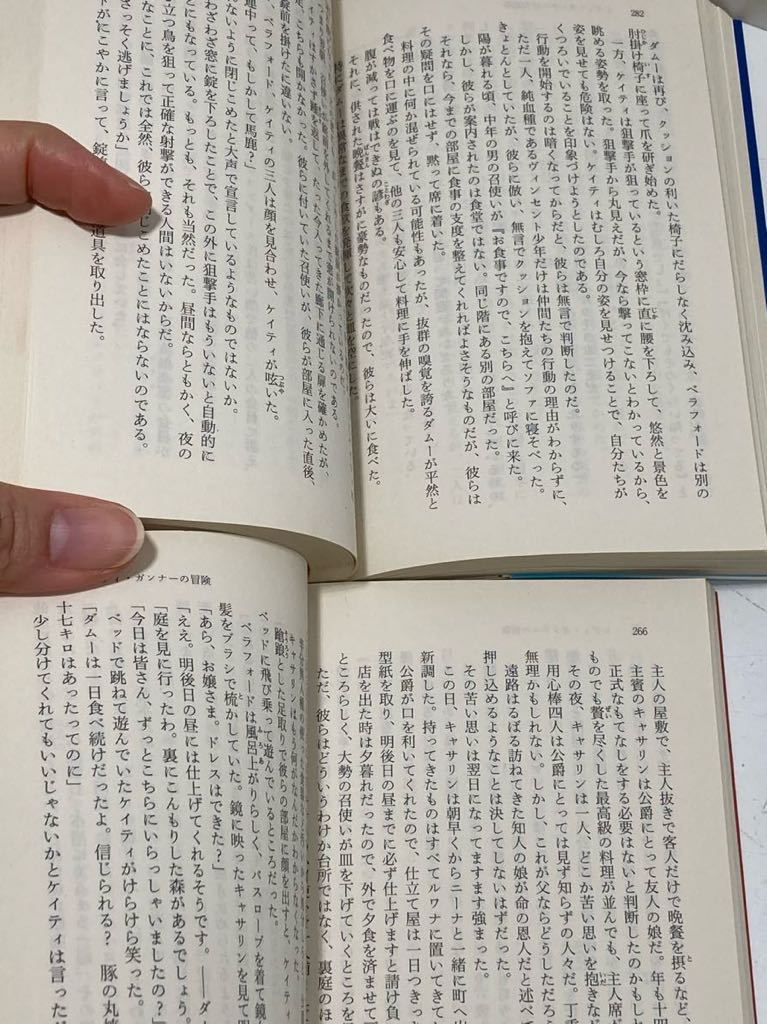 282
ダムーは再び、クッションの利いた椅子にだらしなく沈み込み、ベラフォードは別の
肘掛け椅子に座って爪を研ぎ始めた。
一方、ケイティは狙撃手が狙っているという窓枠に直に腰を下ろして、悠然と景色を
眺める姿勢を取った。狙撃手から丸見えだが、今なら撃ってこないとわかっているから、
姿を見せても危険はない。ケイティはむしろ自分の姿を見せつけることで、自分たちが
くつろいでいることを印象づけようとしたのである。
行動を開始するのは暗くなってからだと、彼らは無言で判断したのだ。
ただ一人、純血種であるヴィンセント少年だけは仲間たちの行動の理由がわからずに、
きょとんとしていたが、彼らに倣い、無言でクッションを抱えてソファに寝そべった。
陽が暮れる頃、中年の男の召使いが『お食事ですので、こちらへ』と呼びに来た。
しかし、彼らが案内されたのは食堂ではない。同じ階にある別の部屋だった。
それなら、今までの部屋に食事の支度を整えてくれればよさそうなものだが、彼らは
その疑問を口にはせず、黙って席に着いた。
料理の中に何か混ぜられている可能性もあったが、抜群の嗅覚を誇るダムーが平然と
食べ物を口に運ぶのを見て、他の三人も安心して料理に手を伸ばした。
腹が減っては戦はできぬの諺もある。
それに、供された晩餐はさすがに豪勢なものだったので、彼らは大いに食べた。
窓が開けられないのである。
たった今入ってきた廊下に通じる扉を確かめたが、
こちらも開かなかった。彼らに付いていた召使いが、彼らが部屋に入った直後、
錠前を掛けたに違いない。
ベラフォード、ケイティの三人は顔を見合わせ、ケイティが呟いた。
連中って、もしかして馬鹿？」
ないように閉じこめたと大声で宣言しているようなものではないか。
わざわざ窓に錠を下ろしたことで、この外に狙撃手はもういないと自動的に
とにもなっている。もっとも、それも当然だった。昼間ならともかく、夜の
立つ鳥を狙って正確な射撃ができる人間はいないからだ。
なことに、これでは全然、彼ら　じこめたことにはならないのである。
さっそく逃げましょうか」
がにこやかに言って、錠　道具を取り出した。
266
主人の屋敷で、主人抜きで客人だけで晩餐を摂るなど、
主賓のキャサリンは公爵にとって友人の娘だ。年も十四
正式なもてなしをする必要はないと判断したのかもしれ
ものでも贅を尽くした最高級の料理が並んでも、主人席が
その夜、キャサリンは一人、どこか苦い思いを抱きなが
用心棒四人は公爵にとっては見ず知らずの人々だ。丁重
無理かもしれない。しかし、これが父ならどうしただろう
遠路はるばる訪ねてきた知人の娘が命の恩人だと述べて
押し込めるようなことは決してしないはずだった。
その苦い思いは翌日になってますます強まった。
この日、キャサリンは朝早くからニーナと一緒に町へ出
新調した。持ってきたものはすべてルワナに置いてきて
公爵が口を利いてくれたので、仕立て屋は一日つきっ
型紙を取り、明後日の昼までに必ず仕上げますと請け負
店を出た時は夕暮れだったので、外で夕食を済ませて
ところらしく、大勢の召使いが皿を下げていくところを
ただ、彼らはどういうわけか台所ではなく、裏庭のほ
ィ・ガンナーの冒険
キャサリンはもう何がなんだかわからなくなった。
蹌踉とした足取りで彼らの部屋に顔を出すと、ケイティ
ベッドに飛び乗って遊んでいるところだった。
ベラフォードは風呂上がりらしく、バスローブを着て鏡
髪をブラシで梳かしていた。鏡に映ったキャサリンを見て
「あら、お嬢さま。ドレスはできた？」
「ええ。明後日の昼には仕上げてくれるそうです。――ダ
「庭を見に行ったわ。裏にこんもりした森があるでしょう。
「今日は皆さん、ずっとこちらにいらっしゃいましたの？」
ベッドで跳ねて遊んでいたケイティがけらけら笑った。
「ダムーは一日食べ続けだったよ。信じられる？　豚の丸
十七キロはあったってのに」
少し分けてくれてもいいじゃないかとケイティは言った